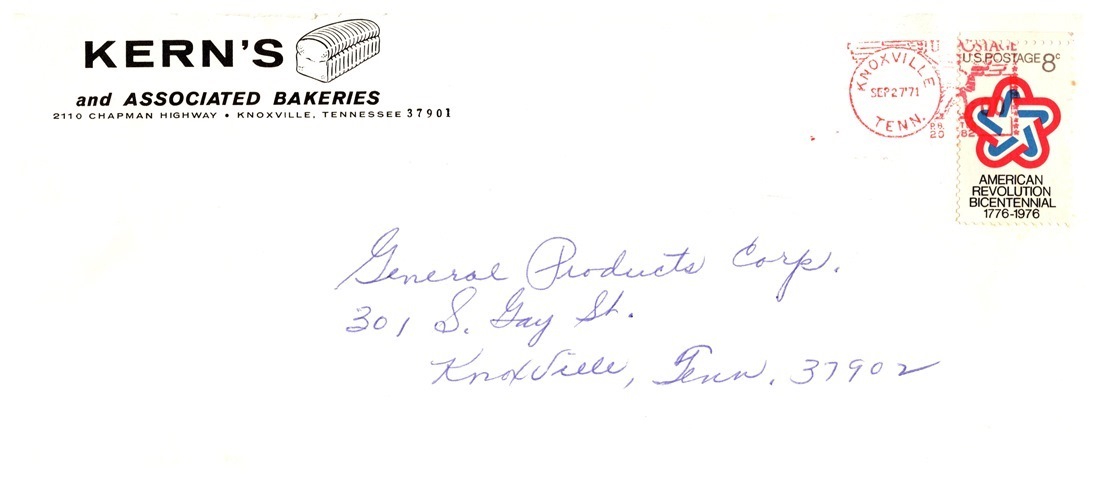 KERN'S
and ASSOCIATED BAKERIES
2110 CHAPMAN HIGHWAY • KNOXVILLE, TENNESSEE 37901
KNOXVILLE
SEP 27 '71
TENN.
U POSTAGE
P.B.
20 82
U.S. POSTAGE 8c
AMERICAN
REVOLUTION
BICENTENNIAL
1776-1976
General Products Corp.
301 S. Gay St.
Knoxville, Tenn. 37902